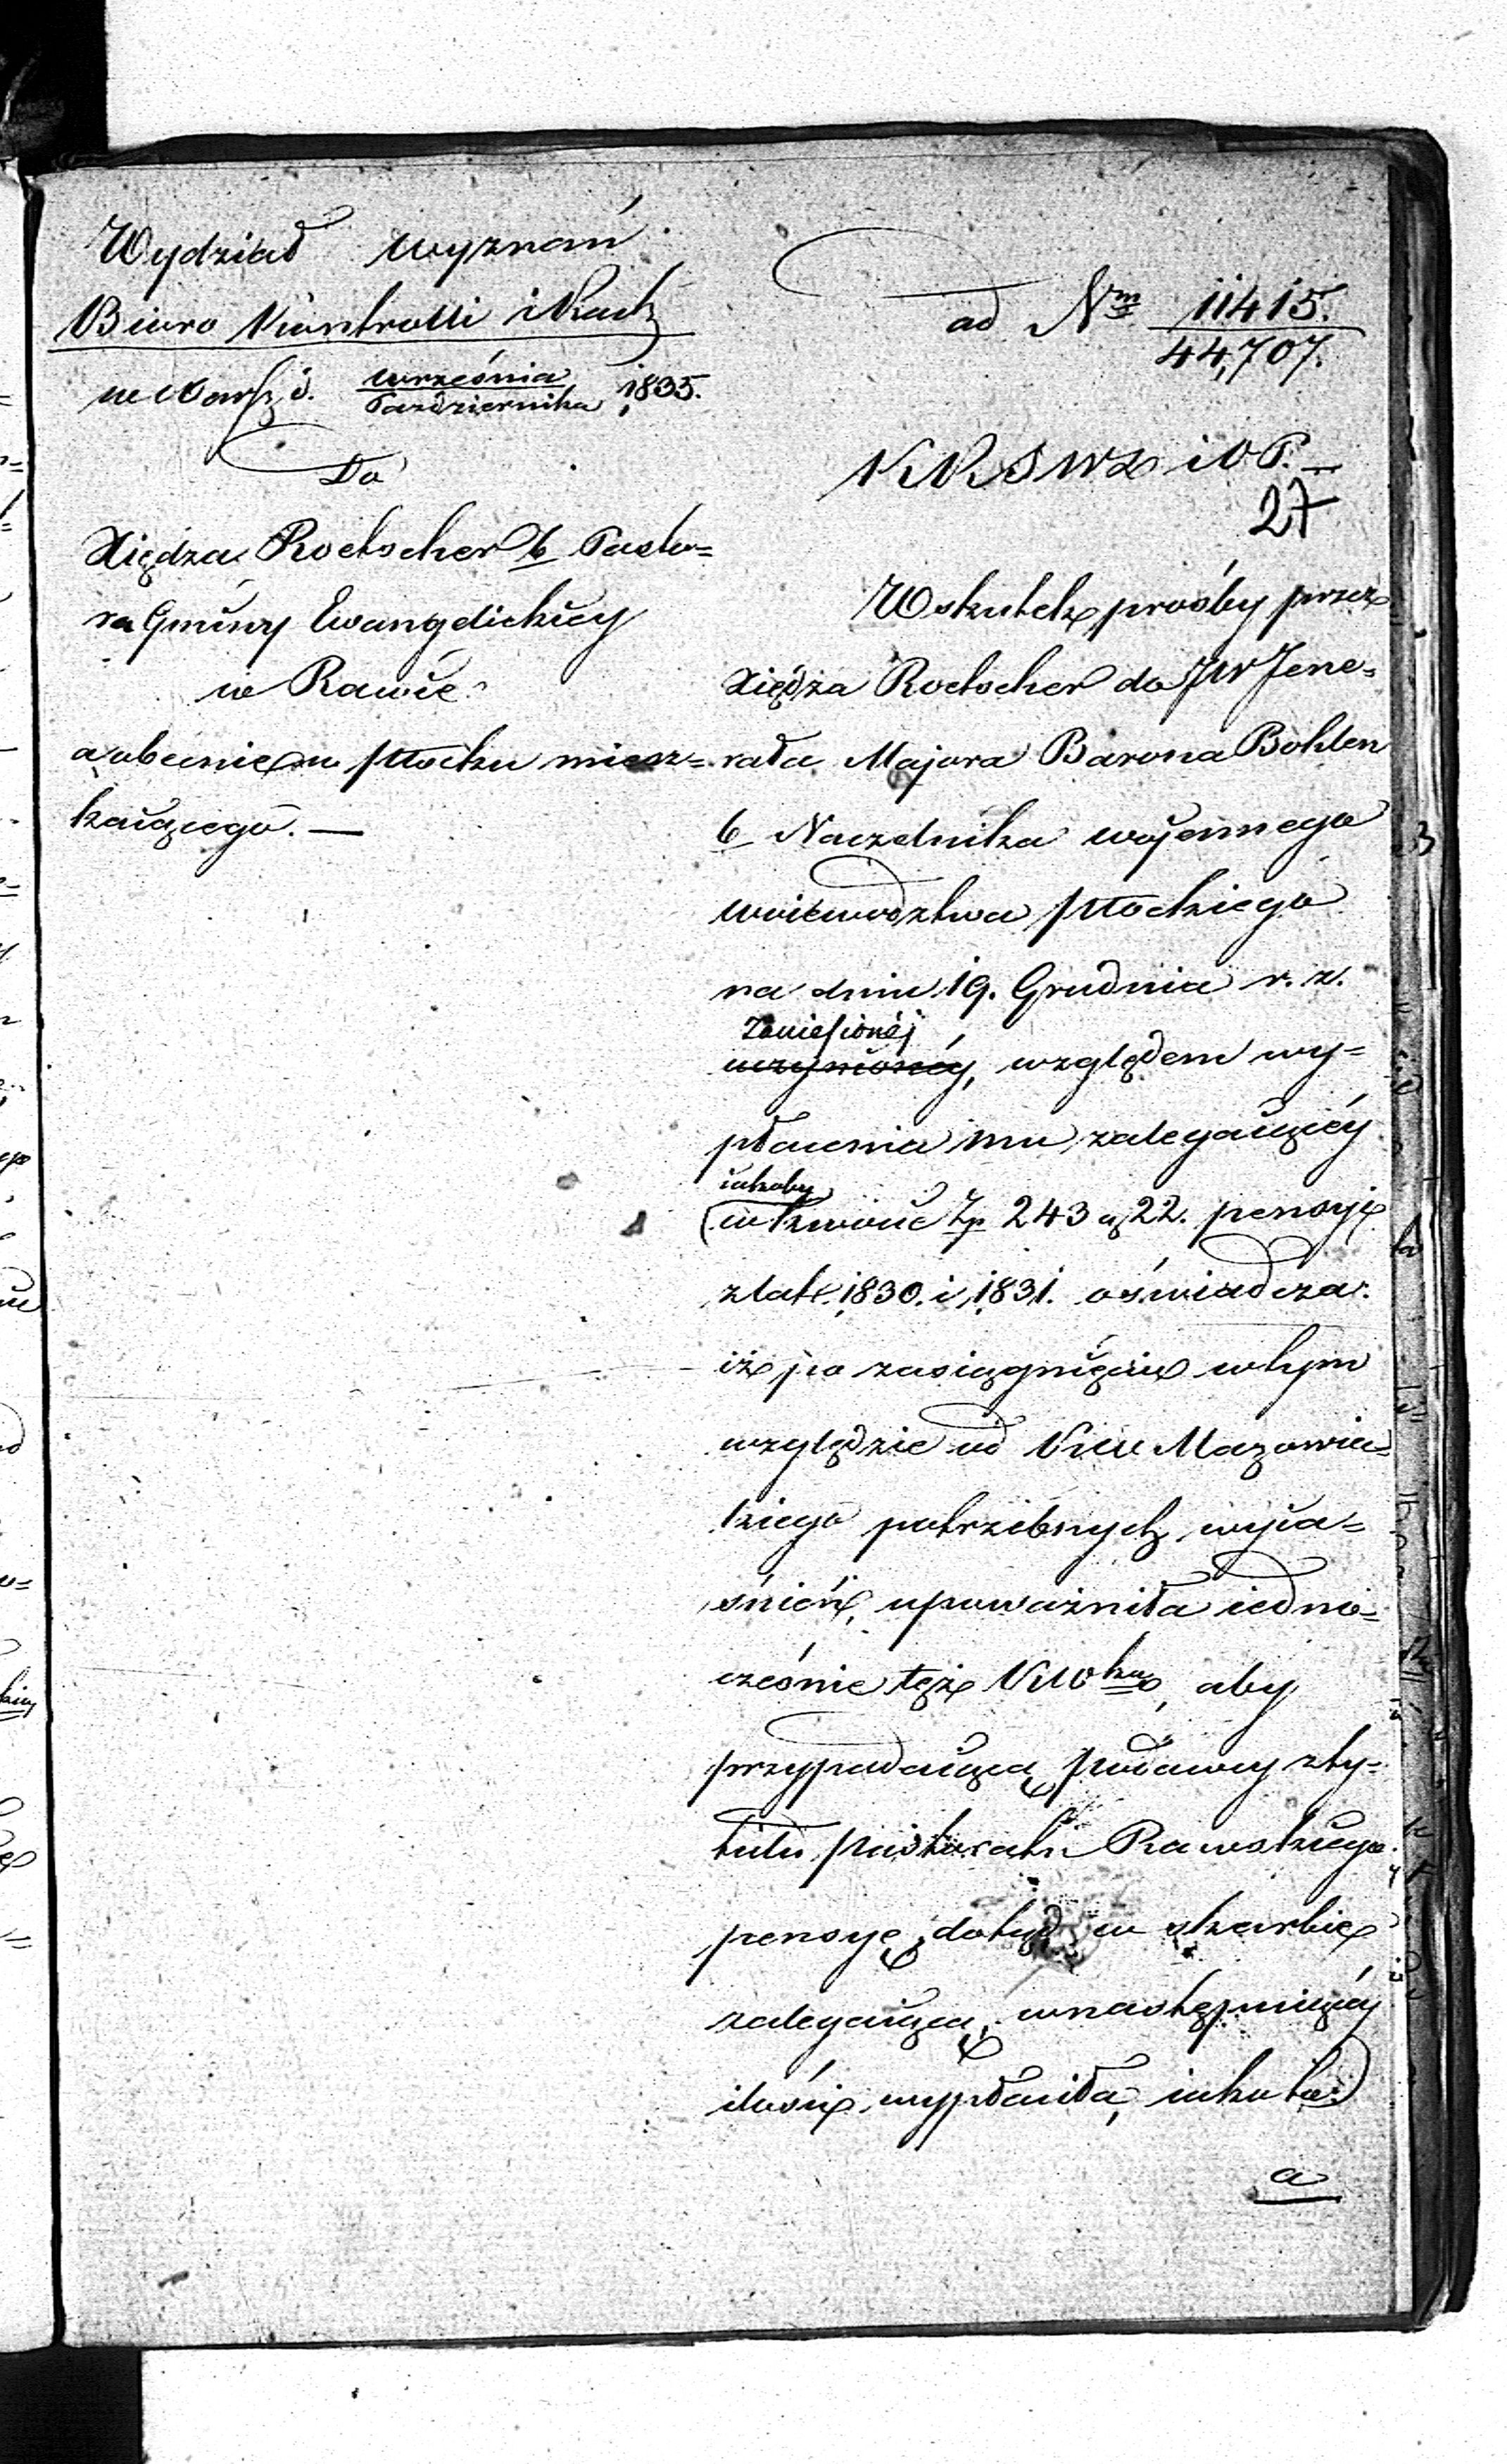 Wydział Wyznań
Biuro Kontrolli i Rach
w Warsz. d. września / Października 1835.
Do
Xiędza Roetscher b Pasto=
ra Gminy Ewangelickiey
w Rawie
a obecnie w Płocku miesz=
kaiącego. —
ad Nrm 11415. / 44,707.
KRSWD i OP. —
27
Wskutek prośby przez
Xiędza Roetscher do JW Jene=
rała Majora Barona Bohlen
b Naczelnika wojennego
woiewództwa Płockiego
na dniu 19. Grudnia r. z.
zaniesionéj
uczynionéy, względem wy=
płacenia mu zalegaiącéy
iakoby
(w kwocie Zp 243 g 22. pensyi
z lat 1830. i 1831. oświadcza:
iż po zasiągnięciu w tym
względzie od KW Mazowiec=
kiego potrzebnych wyia=
śnień, upoważniła iedno=
cześnie też KWską, aby
przypadaiącą podawcy z ty=
tułu pastoratu Rawskiego
pensyę, dotąd w skarbie
zalegaiącą, w następuiącéy
ilości wypłaciła, iako to:)
a